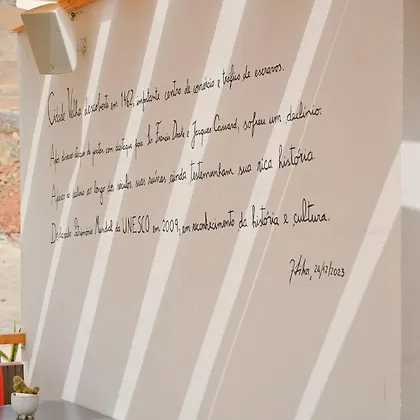 Cidade Velha, descoberta em 1462, importante centro de comércio e tráfico de escravos.
Após diversos ataques de piratas, com destaque para Sir Francis Drake e Jacques Cassard, sofreu um declínio.
ao longo dos séculos, suas ruínas ainda testemunham sua rica história
Declarada Património Mundial da UNESCO em 2009, em reconhecimento da história e cultura.
24/12/2023